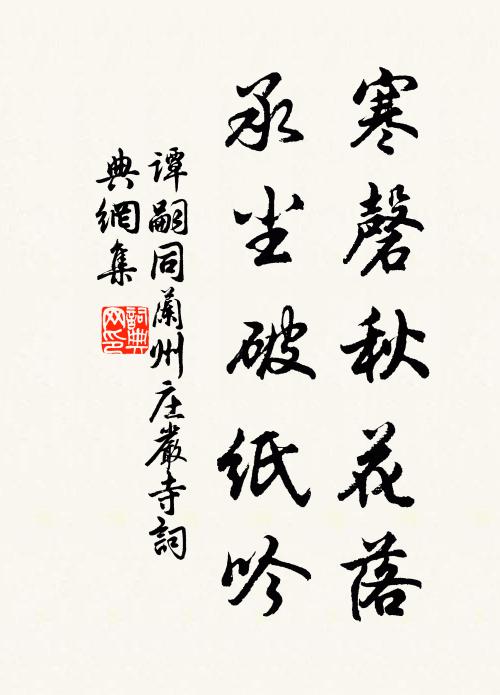 寒磬秋花落
承尘破纸吟
谭嗣同蘭州庄嚴寺詞
典網集
詞典
网印